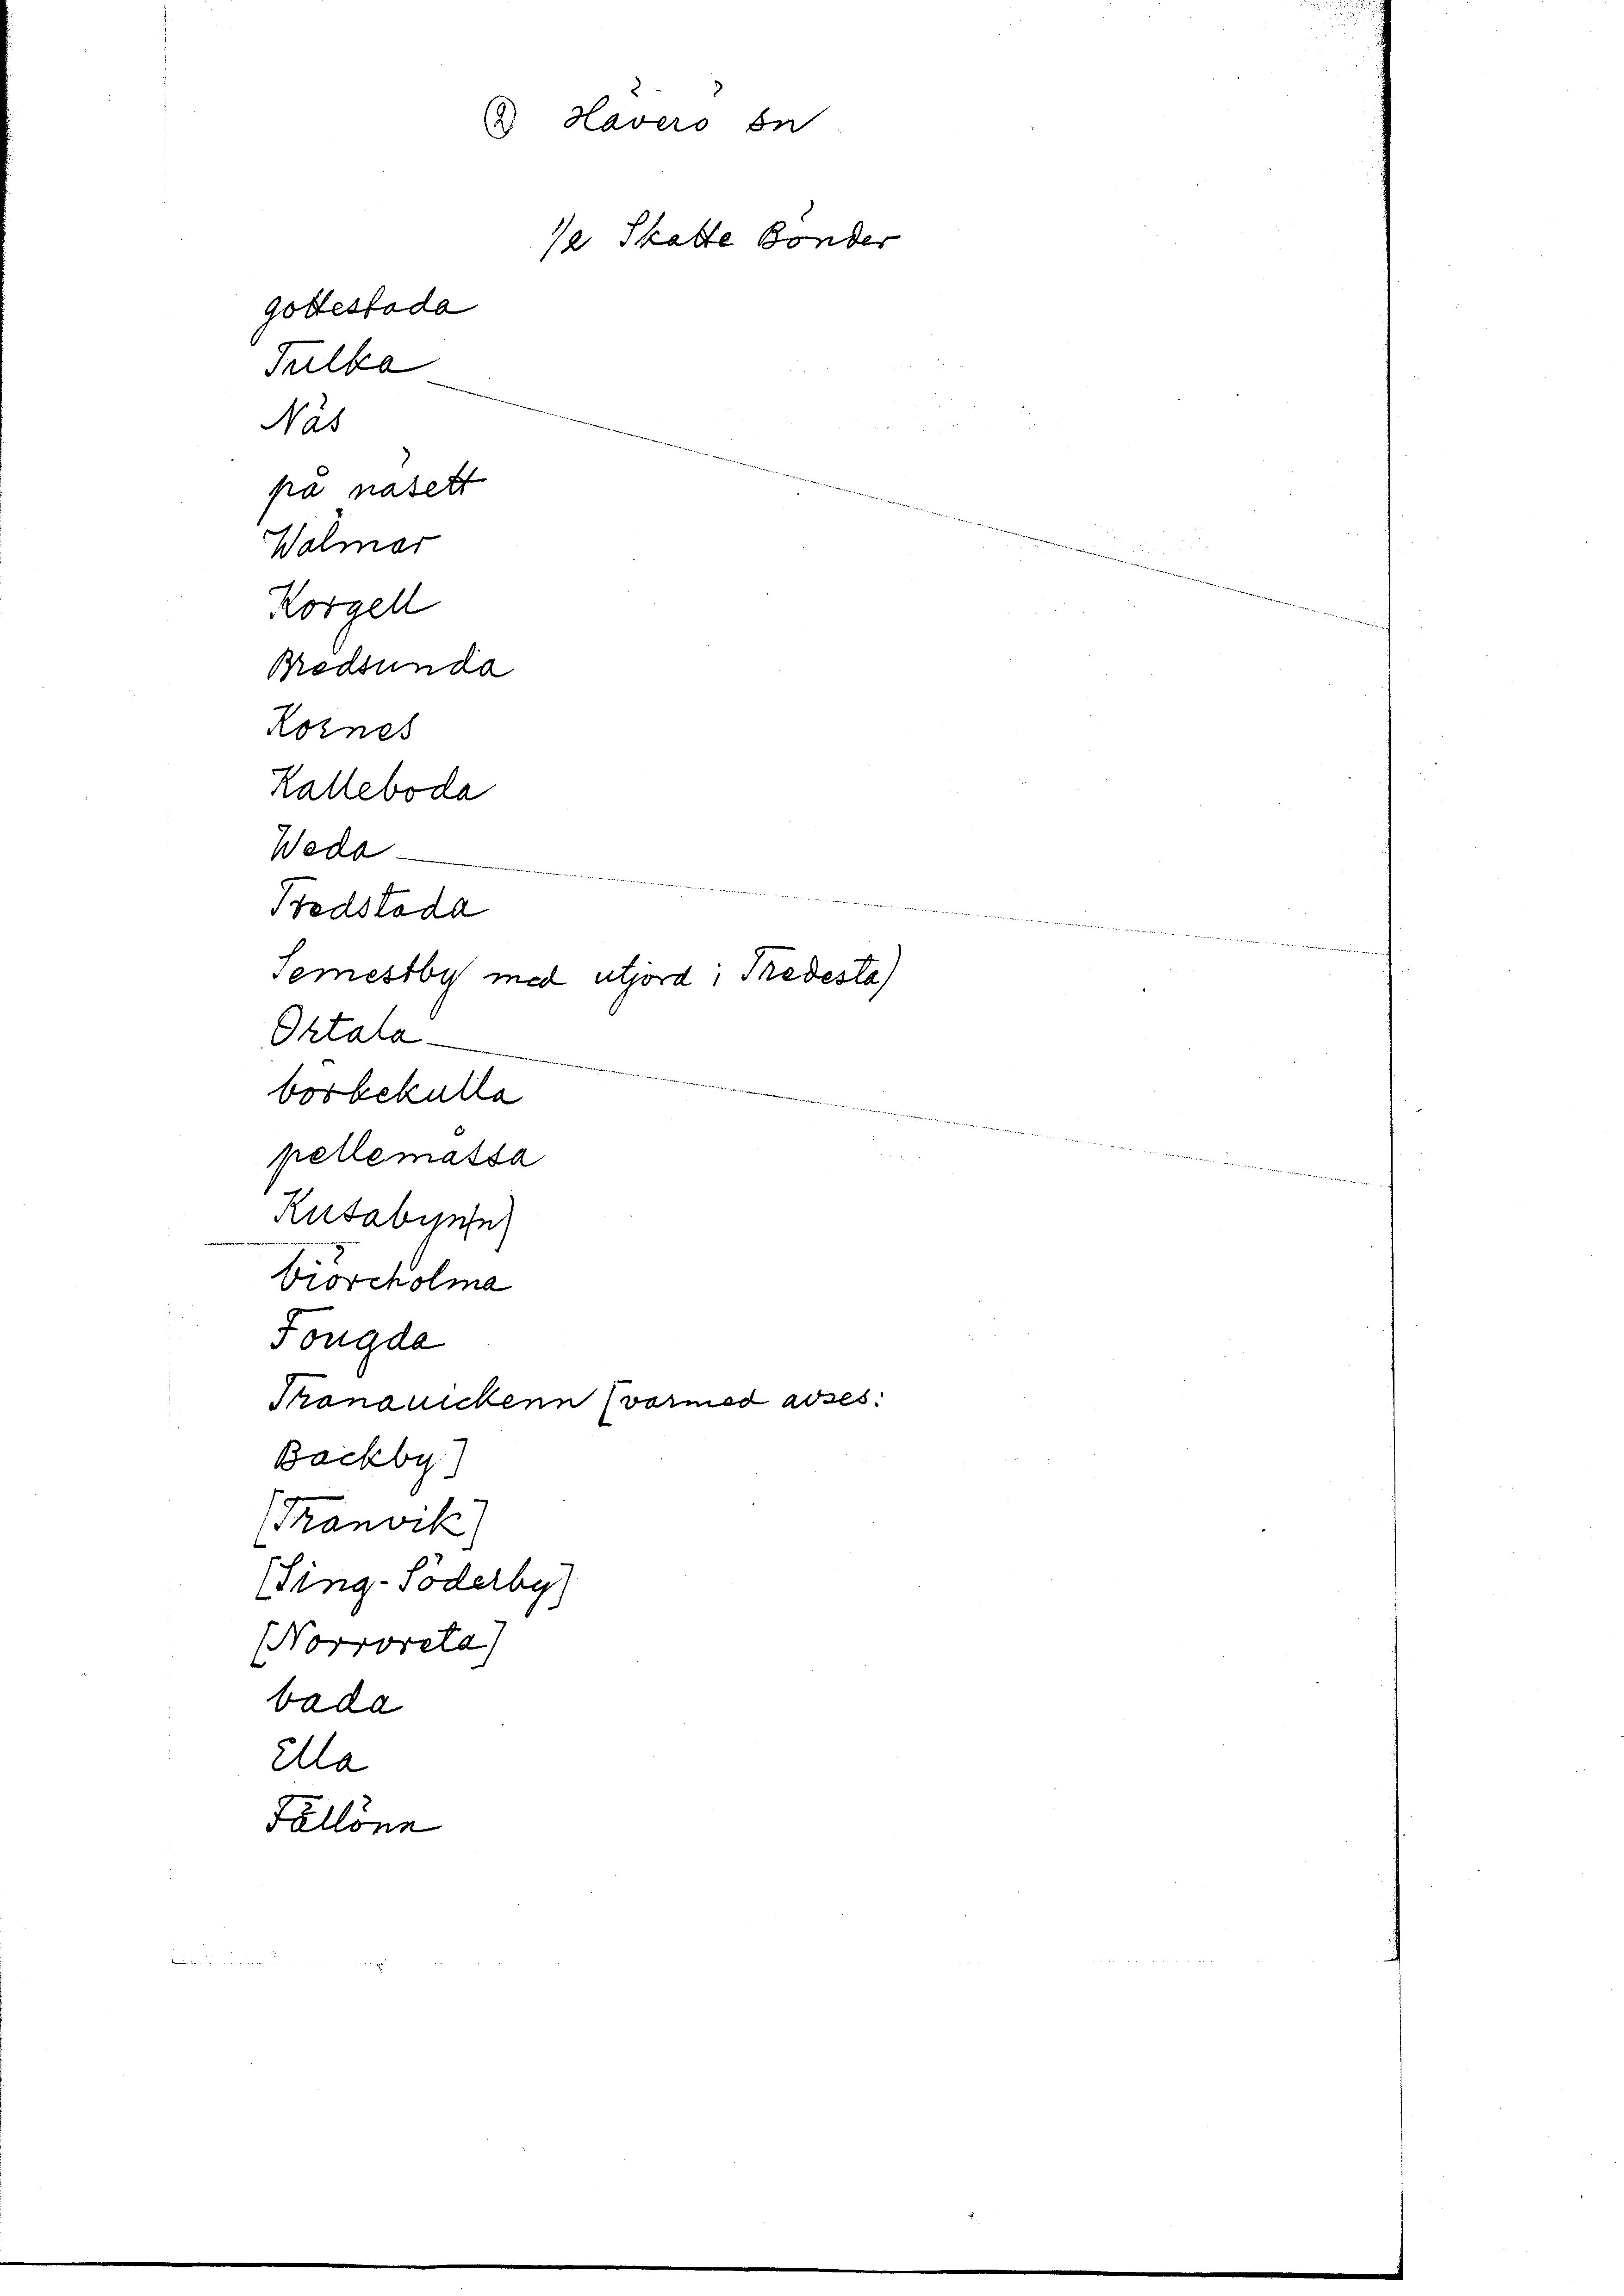 ② Häverö sn
1/2 Skatte Bönder
gottestada
Tulka
Näs
på näsett
Wälmar
Korgell
Bredsunda
Kornes
Kalleboda
Weda
Tredstada
Semestby med utjord i Tredesta)
Ortala
börbekulla
pellemåssa
Kusabynn)
biörcholma
Fougda
Tranauickenn [varmed avses:
Backby]
[Tranvik]
[Sing-Söderby]
[Norrvreta]
bada
Ella
Fällönn